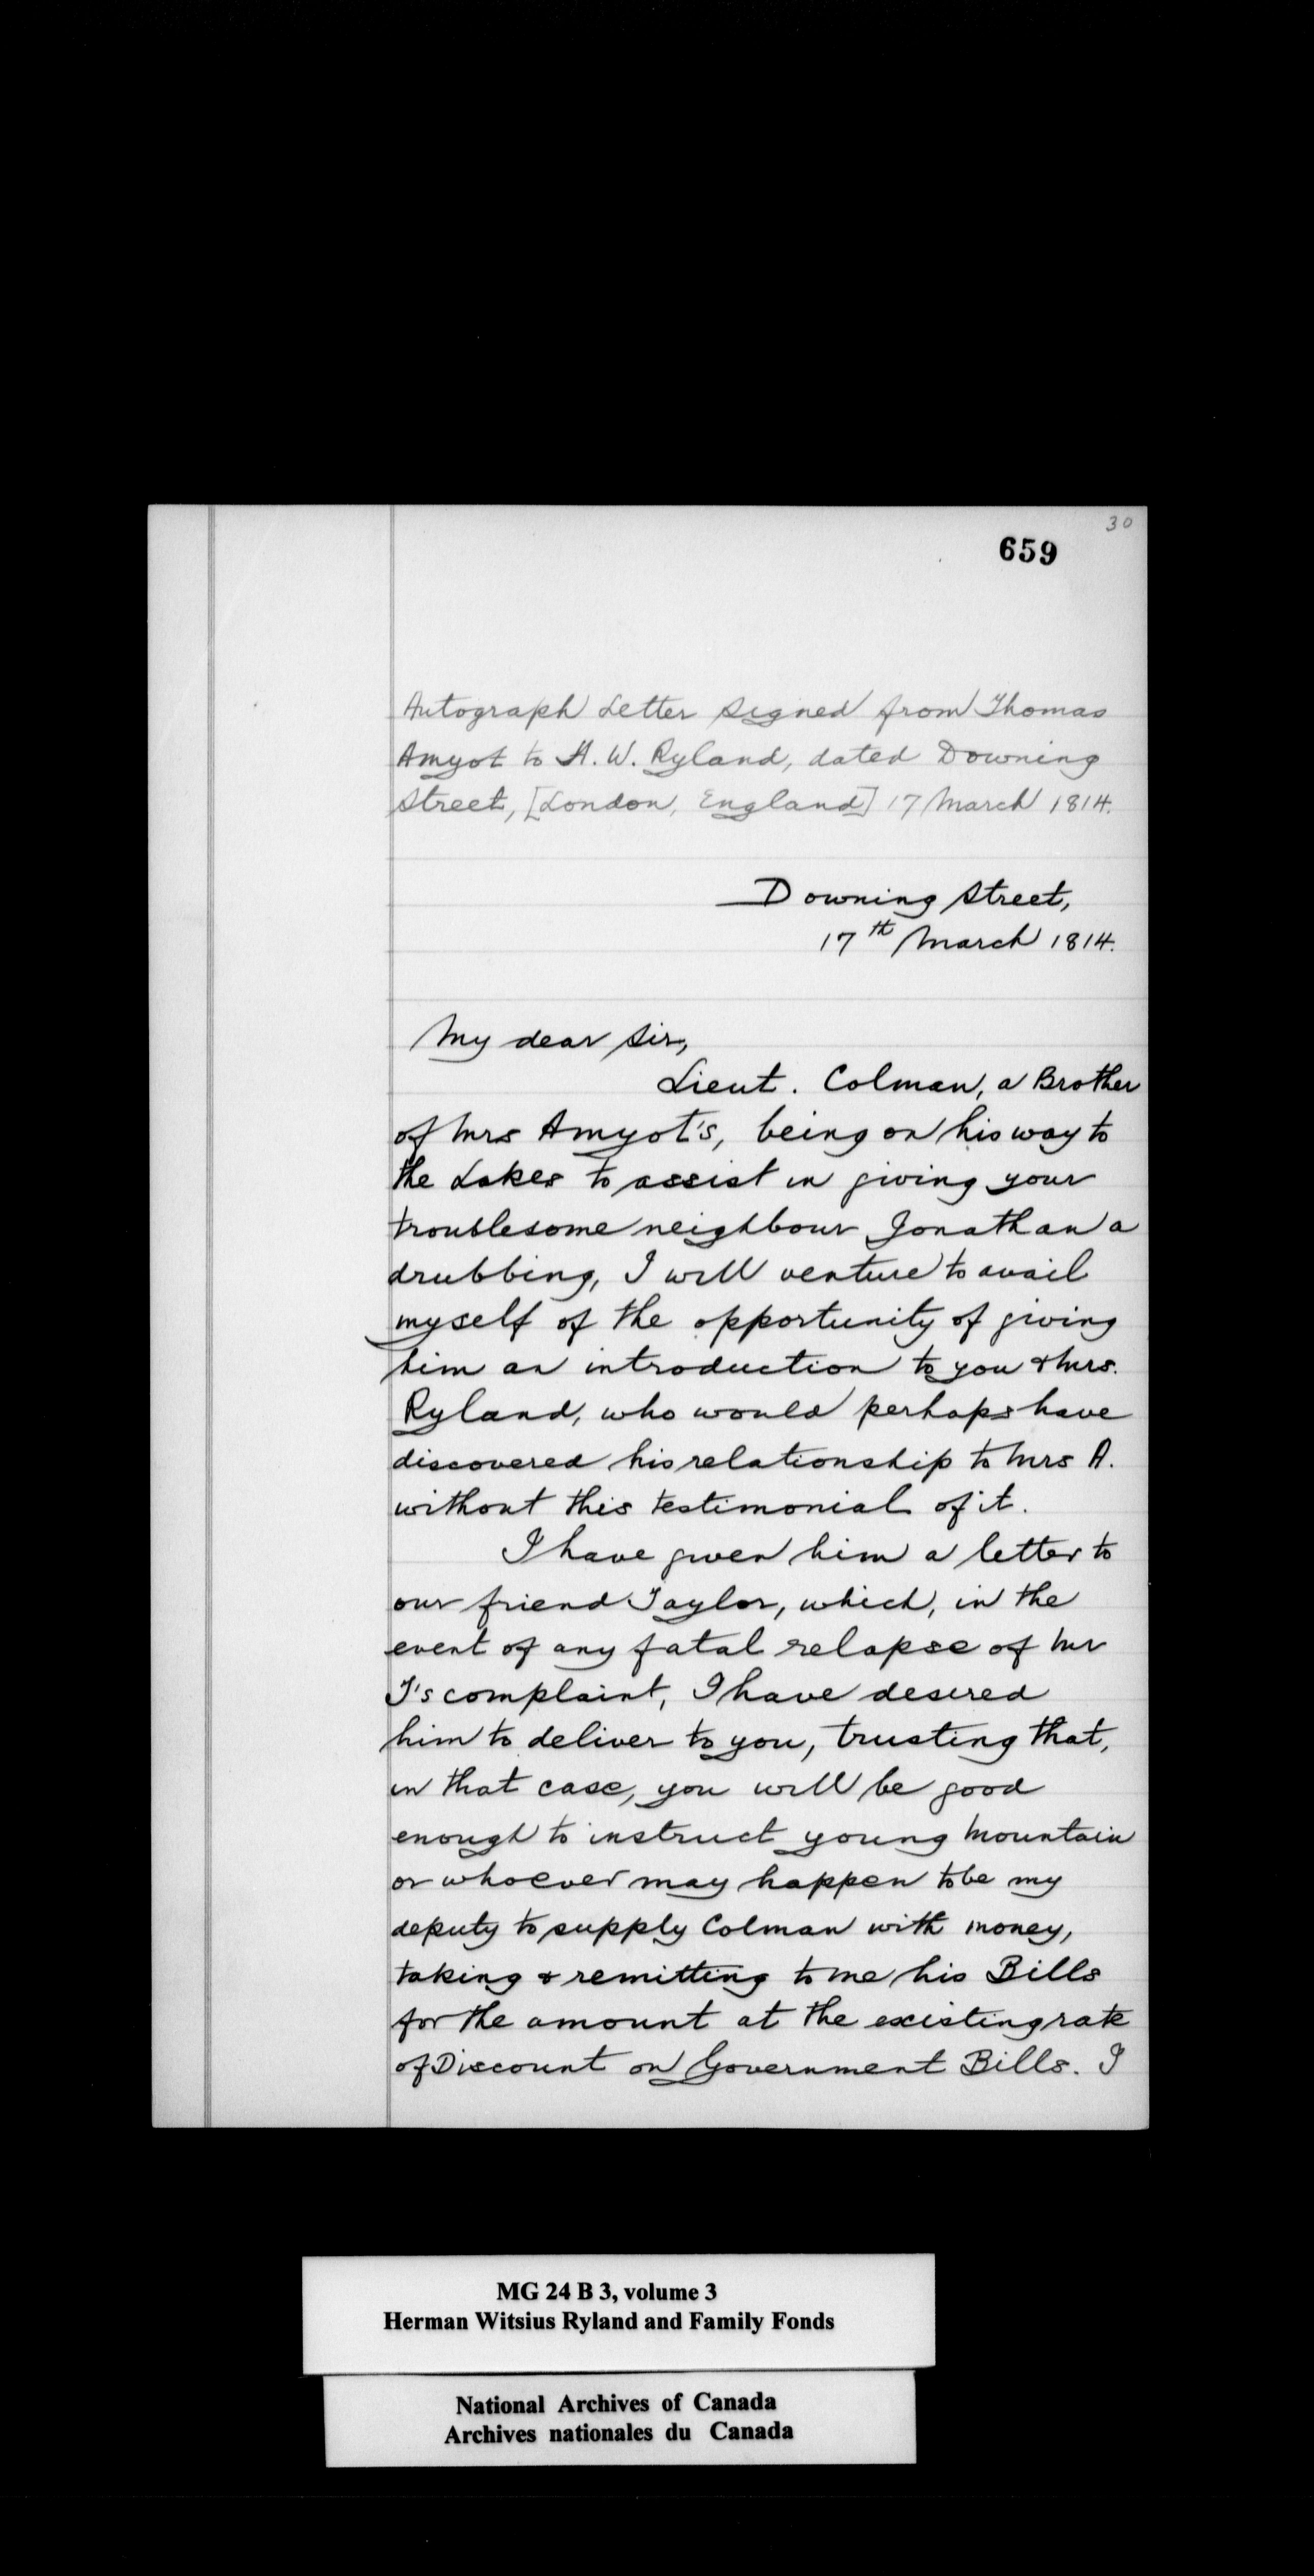 30
659
Autograph Letter Signed from Thomas
Amyot to H. W. Ryland, dated Downing
Street, [London, England] 17 March 1814.
Downing Street,
17th March 1814.
My dear Sir,
Lieut. Colman, a Brother
of Mrs Amyot's, being on his way to
the Lakes to assist in giving your
troublesome neighbour Jonathan a
drubbing, I will venture to avail
myself of the opportunity of giving
him an introduction to you & Mrs.
Ryland, who would perhaps have
discovered his relationship to Mrs A.
without this testimonial of it.
I have given him a letter to
our friend Taylor, which, in the
event of any fatal relapse of Mr
T's complaint, I have desired
him to deliver to you, trusting that,
in that case, you will be good
enough to instruct young Mountain
or whoever may happen to be my
deputy to supply Colman with money,
taking & remitting to me his Bills
for the amount at the existing rate
of Discount on Government Bills. I
MG 24 B 3, volume 3
Herman Witsius Ryland and Family Fonds
National Archives of Canada
Archives nationales du Canada